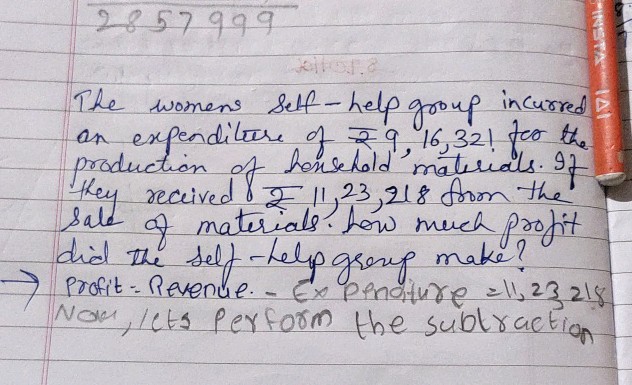 2857999
The womens Self-help group incurred
an expenditure of ₹ 9,16,321 for the
production of household materials. If
they received ₹ 11,23,218 from the
Sale of materials. how much profit
did the self-help group make?
→ Profit = Revenue. - Expenditure = 11,23,218
Now, lets Perform the subtraction
INSTA